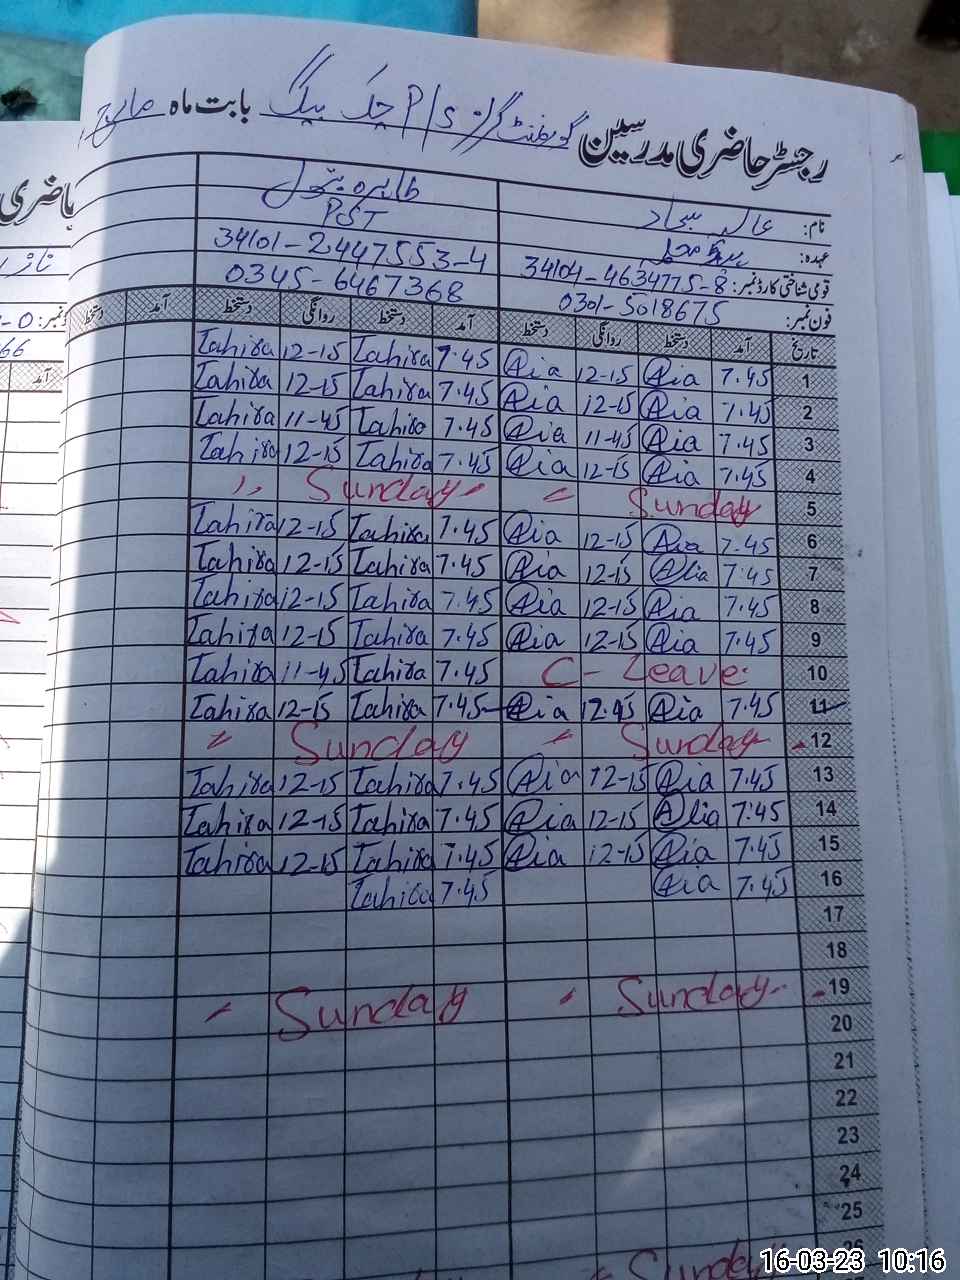 رجسٹر حاضری مدرسین گورنمنٹ گرلز P/S چک بیگ بابت ماہ مارچ
نام: عالیہ سجاد طاہرہ بتول
عہدہ: PST
قومی شناختی کارڈ نمبر: 34104-4634775-8 34101-2447553-4
فون نمبر: 0301-5018675 0345-6467368
تاریخ آمد دستخط روانگی دستخط آمد دستخط روانگی دستخط آمد دستخط
1 7.45 Alia 12-15 Alia 7.45 Tahira 12-15 Tahira
2 7.45 Alia 12-15 Alia 7.45 Tahira 12-15 Tahira
3 7.45 Alia 11-45 Alia 7.45 Tahira 11-45 Tahira
4 7.45 Alia 12-15 Alia 7.45 Tahira 12-15 Tahira
5 Sunday Sunday
6 7.45 Alia 12-15 Alia 7.45 Tahira 12-15 Tahira
7 7.45 Alia 12-15 Alia 7.45 Tahira 12-15 Tahira
8 7.45 Alia 12-15 Alia 7.45 Tahira 12-15 Tahira
9 7.45 Alia 12-15 Alia 7.45 Tahira 12-15 Tahira
10 C-Leave. 7.45 Tahira 11-45 Tahira
11 7.45 Alia Alia 7.45 Tahira 12-15 Tahira
12 Sunday Sunday
13 7.45 Alia 12-15 Alia 7.45 Tahira 12-15 Tahira
14 7.45 Alia 12-15 Alia 7.45 Tahira 12-15 Tahira
15 7.45 Alia 12-15 Alia 7.45 Tahira 12-15 Tahira
16 7.45 Alia 7.45 Tahira
17
18
19 Sunday Sunday
20
21
22
23
24
25
26 Sunday
16-03-23 10:16